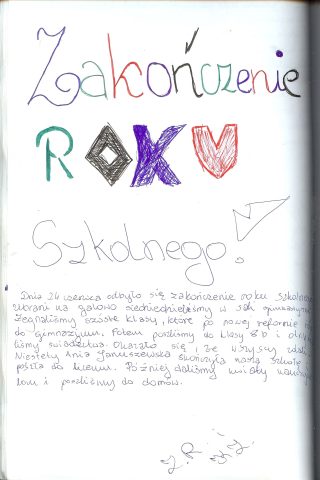 Zakończenie
ROKU
Szkolnego!
Dnia 24 czerwca odbyło się zakończenie roku szkolnego
Ubrani na galowo siedzieliśmy w sali gimnast
Żegnaliśmy szóste klasy, które po nowej reformie
do gimnazjum. Potem poszliśmy do klasy
liśmy świadectwa. Okazało się, że wszyscy zdali
Niestety Ania Januszewska skończyła naszą szkołę
poszła do liceum. Później daliśmy kwiaty nauczy
lom i poszliśmy do domów.